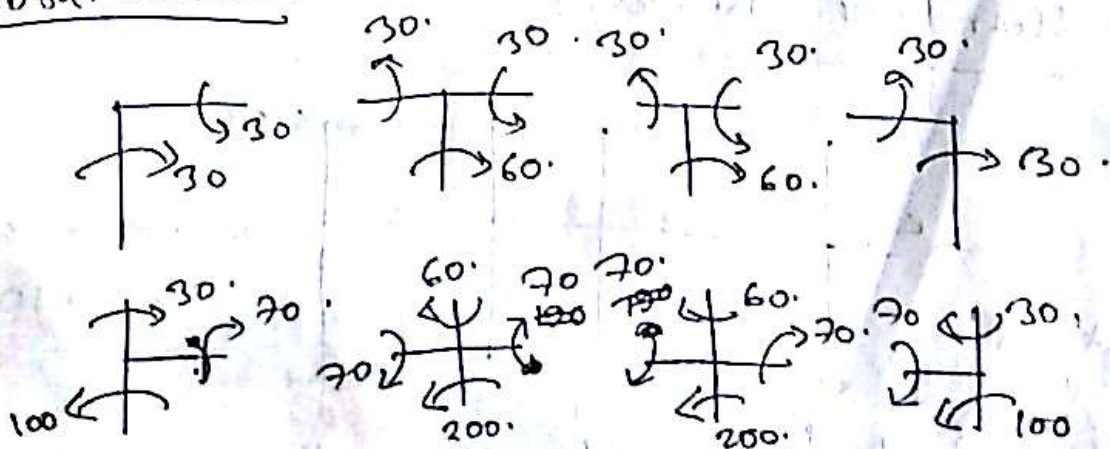 30. 30. 30. 30. 30.
30.
30 60. 60. 30.
30. 60. 70 70. 60. 70 30.
70. 70.
70
100 200. 200. 100